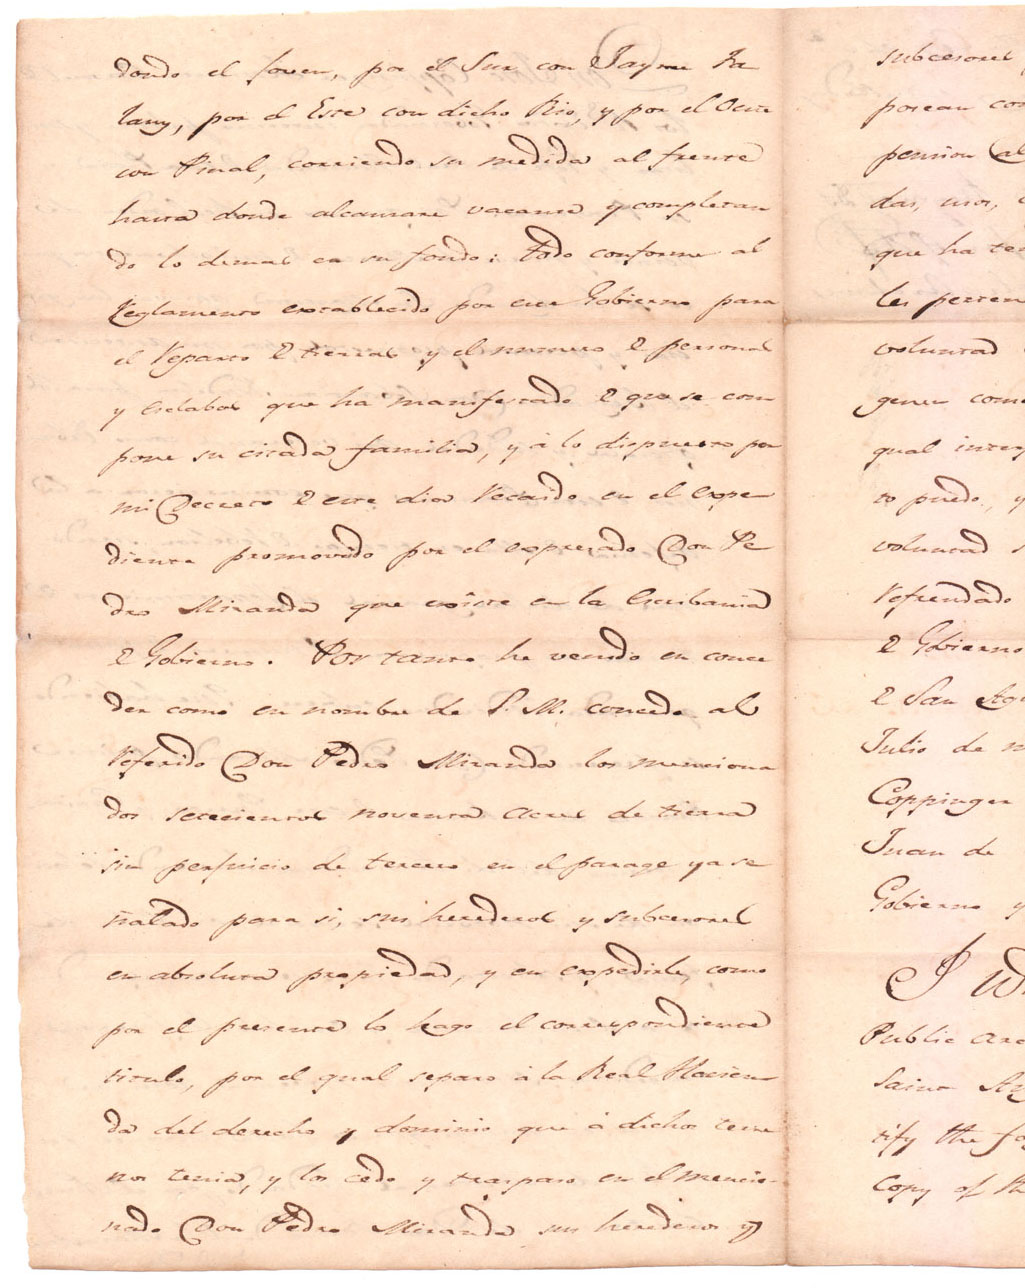 dondo el joven, por el Sur con Jayme Ra
lany, por el Este con dicho Rio, y por el Oeste
con Pinal, corriendo su medida al frente
hasta donde alcansare vacante y completan
do lo demas en su fondo: todo conforme al
Reglamento extablecido por este Gobierno para
el Reparto de tierras y el numero de personas
y esclabos que ha manifestado de que se com
pone su citada familia, y à lo dispuesto por
mi Decreto de este dia recaido en el expe
diente promovido por el expresado Don Pe
dro Miranda que existe en la Escribania
de Gobierno. Por tanto he venido en conce
der como en nombre de S. M. concedo al
referido Don Pedro Miranda los menciona
dos setecientos noventa acres de tierra
sin perjuicio de tercero en el parage ya se
ñalado para si, sus herederos y subcesores
en absoluta propiedad, y en expedirle, como
por el presente lo hago el correspondiente
titulo, por el qual separo à la Real Hacien
da del derecho y dominio que à dichos terre
nos tenia, y los cedo y traspaso en el mencio-
nado Don Pedro Miranda sus herederos y
subcesores
posean con
pension al
das, usos,
que ha ten
les perten
voluntad
gener come
qual inter
to puedo, y
voluntad s
Refrendado
de Gobierno
de San Ag
Julio de m
Coppinger
Juan de
Gobierno y
I
Public Arc
Saint
tify the fo
Copy of th